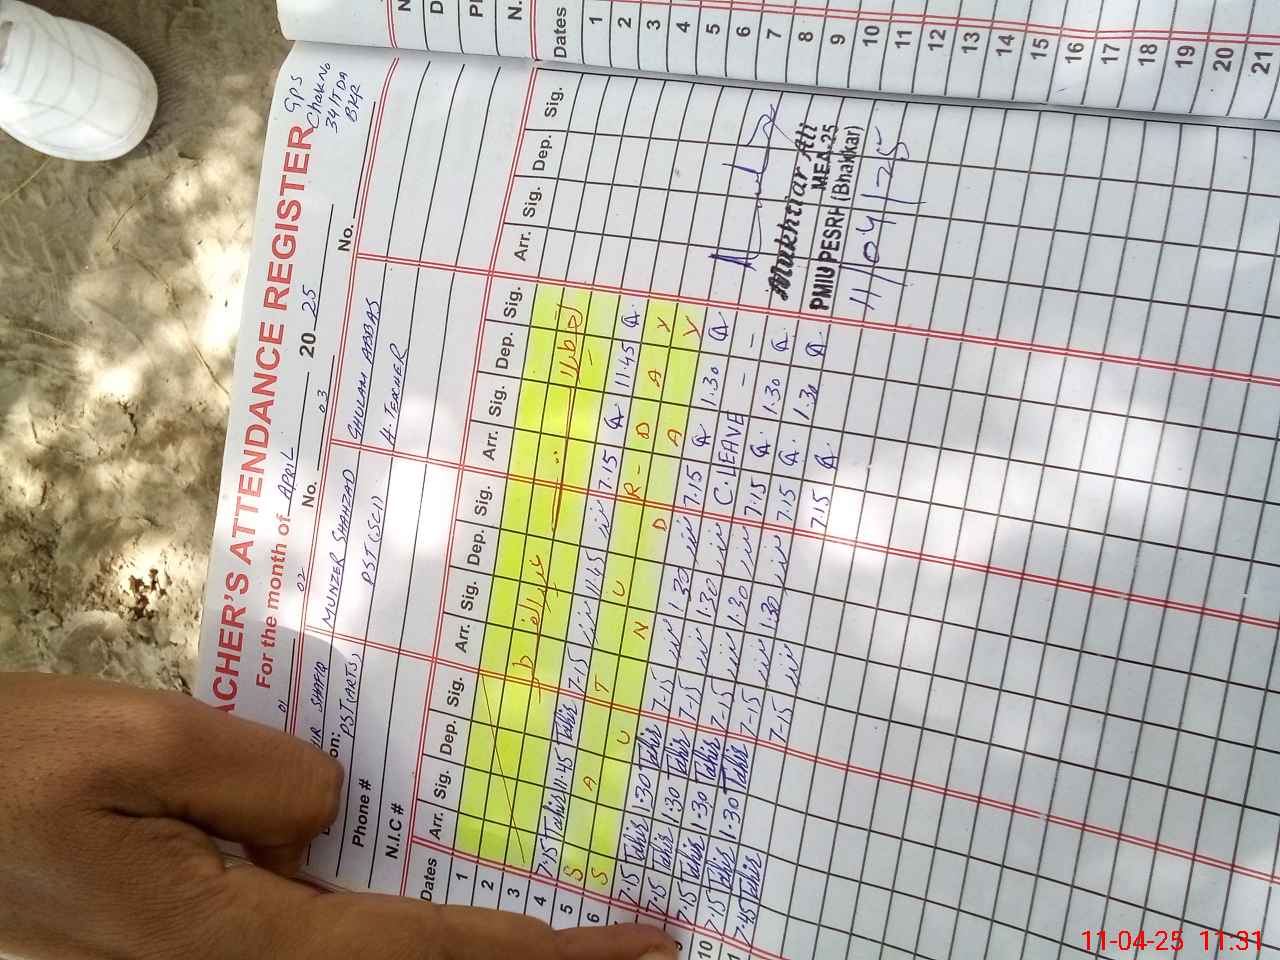 ACHER'S ATTENDANCE REGISTER
GPS
Chak No
34/TDA
BKR
For the month of APRIL 20 25
01 No. 02 No. 03 No.
SHAFIQ MUNZER SHAHZAD GHULAM ABBAS
on: PST(ARTS) PST(SCI) A. TEACHER
Phone #
N.I.C #
Dates Arr. Sig. Dep. Sig. Arr. Sig. Dep. Sig. Arr. Sig. Dep. Sig. Arr. Sig. Dep. Sig.
1
2
3
4 7:15 Tahir 11:45 Tahir 7-15 11:45 7.15 11.45
5 S A T U R - D A Y
6 S U N D A Y
7:15 Tahir 1:30 Tahir 7-15 1:30 7.15 1.30
7:15 Tahir 1:30 Tahir 7-15 1:30 C. LEAVE - -
9 7:15 Tahir 1:30 Tahir 7-15 1:30 7:15 1.30
10 7:15 Tahir 1:30 Tahir 7-15 1:30 7.15 1.30
7:45 Tahir 7-15 7.15
Mukhtiar Ali
MEA-25
PMIU PESRP (Bhakkar)
11/04/25
Dates
1
2
3
4
5
6
7
8
9
10
11
12
13
14
15
16
17
18
19
20
21
11-04-25 11:31